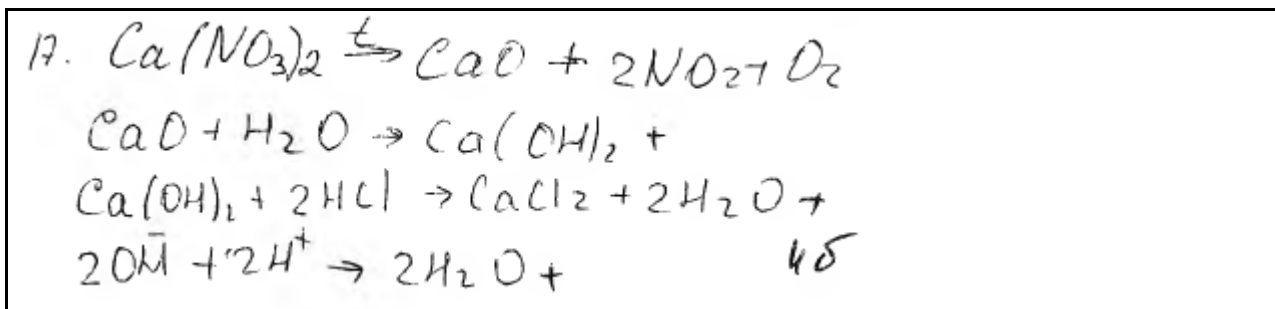 17. Ca(NO3)2 t→ CaO + 2NO2+ O2
CaO + H2O → Ca(OH)2 +
Ca(OH)2 + 2HCl → CaCl2 + 2H2O +
2OH- + 2H+ → 2H2O +
4б